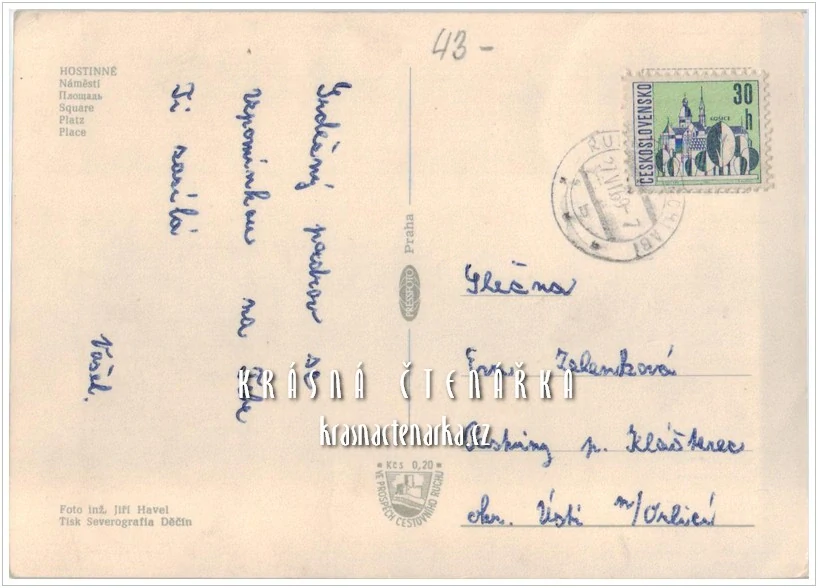 43-
HOSTINNÉ
Náměstí
Площадь
Square
Platz
Place
Srdečný pozdrav se
vzpomínkou na Tebe
Ti zasílá
Vašel.
PRESSFOTO Praha
ČESKOSLOVENSKO
30 h
KOŠICE
b
Slečna
Zelenková
p. Klášterec
okr. Ústí n/Orlicí
KRÁSNÁ ČTENÁŘKA
krasnactenarka.cz
Kčs 0,20
VE PROSPĚCH CESTOVNÍHO RUCHU
Foto inž. Jiří Havel
Tisk Severografia Děčín